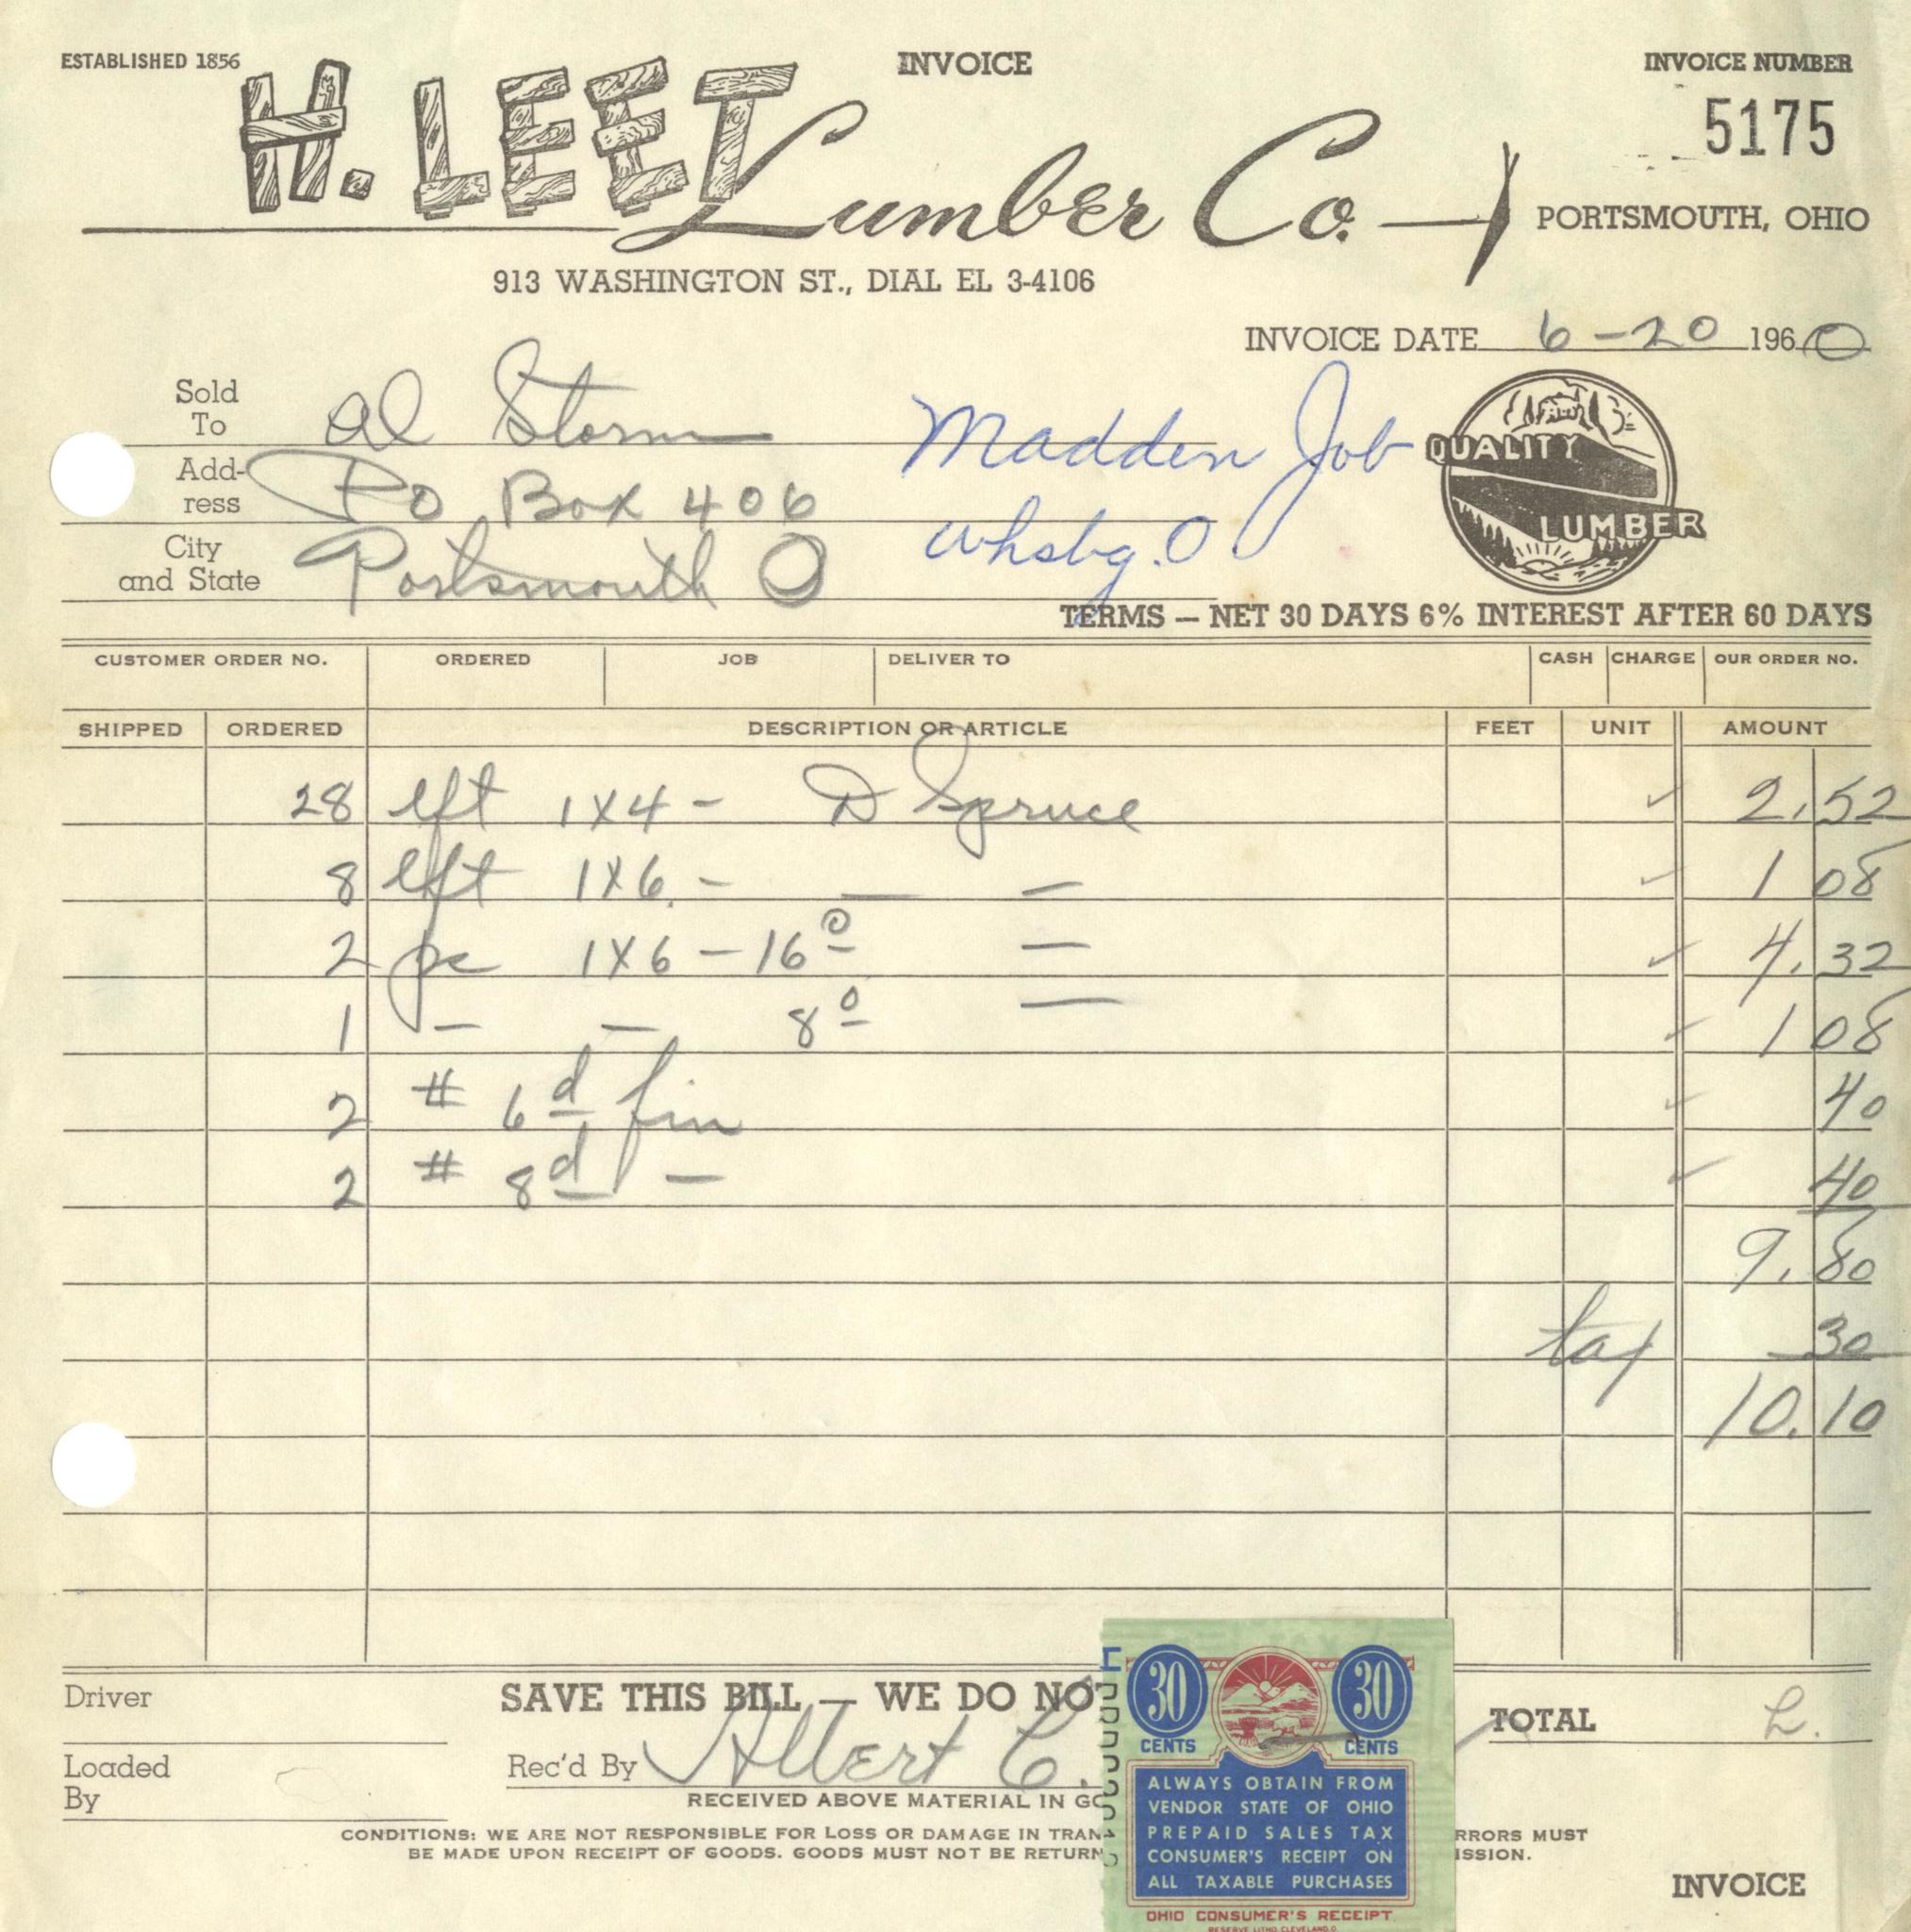 ESTABLISHED 1856
INVOICE
INVOICE NUMBER
5175
H. LEET Lumber Co.
PORTSMOUTH, OHIO
913 WASHINGTON ST., DIAL EL 3-4106
INVOICE DATE 6-20 1960
Sold To Al Storm
Madden Job
Address PO Box 406
whsbg. O
City and State Portsmouth O
QUALITY LUMBER
TERMS — NET 30 DAYS 6% INTEREST AFTER 60 DAYS
CUSTOMER ORDER NO. ORDERED JOB DELIVER TO CASH CHARGE OUR ORDER NO.
SHIPPED ORDERED DESCRIPTION OR ARTICLE FEET UNIT AMOUNT
28 lft 1X4 - D Spruce ✓ 2.52
8 lft 1X6 - — — ✓ 1 08
2 pc 1X6 - 16⁰ — ✓ 4.32
1 — — 8⁰ — ✓ 1 08
2 # 6d fin ✓ 40
2 # 8d — ✓ 40
9.80
tax 30
10.10
Driver
SAVE THIS BILL — WE DO NOT
TOTAL
Loaded By
Rec'd By Albert C.
RECEIVED ABOVE MATERIAL IN GO
CONDITIONS: WE ARE NOT RESPONSIBLE FOR LOSS OR DAMAGE IN TRAN
RRORS MUST
BE MADE UPON RECEIPT OF GOODS. GOODS MUST NOT BE RETURN
ISSION.
INVOICE
30 30
CENTS CENTS
ALWAYS OBTAIN FROM
VENDOR STATE OF OHIO
PREPAID SALES TAX
CONSUMER'S RECEIPT ON
ALL TAXABLE PURCHASES
OHIO CONSUMER'S RECEIPT
RESERVE LITHO. CLEVELAND, O.